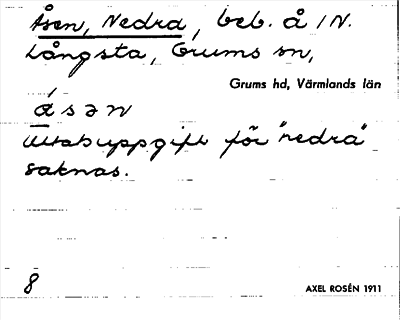 Åsen, Nedra, beb. å 1 N.
Långsta, Grums sn,
Grums hd, Värmlands län
ǻsən
Uttalsuppgift för "nedra"
saknas.
8
AXEL ROSÉN 1911